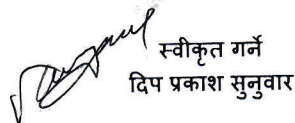 स्वीकृत गर्ने
दिप प्रकाश सुनुवार